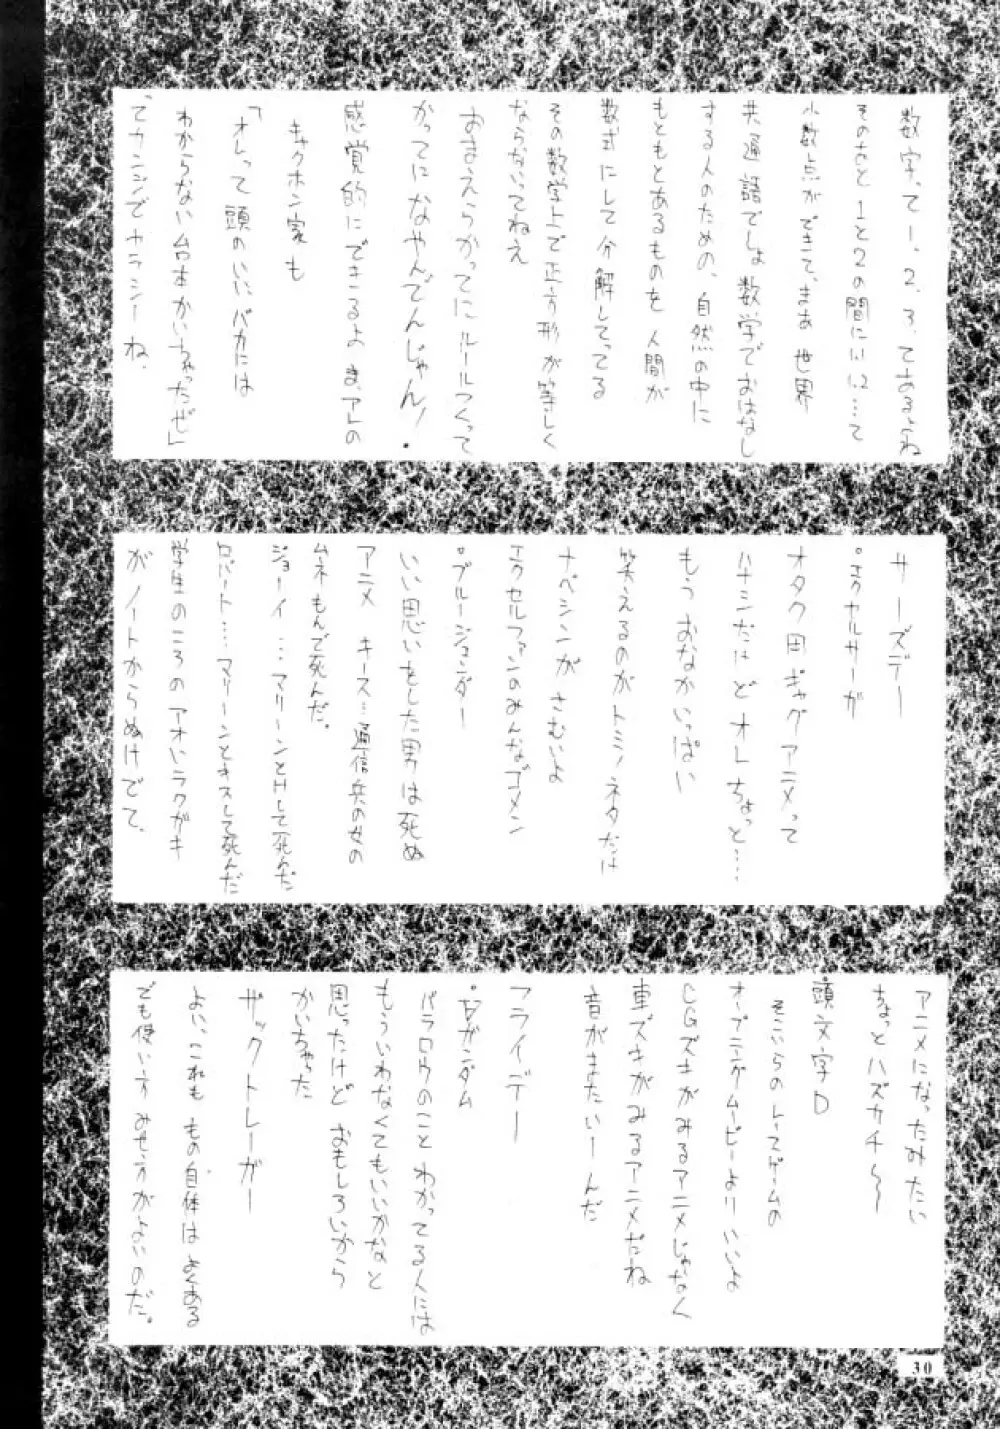 数字って1、2、3、てあるよね
そのあと1と2の間に1.1 1.2…って
小数点ができて、まあ世界
共通語でしょ 数学でおはなし
する人のための、自然の中に
もともとあるものを人間が
数式にして分解してってる
その数学上で正方形が等しく
ならないってねえ
おまえらかってにルールつくって
かってになやんでんじゃん!
感覚的にできるよ ま、アレの
キャクホン家も
「オレって頭のいいバカには
わからない台本かいちゃったぜ」
てカンジでカラシーね、
サーズデー
・エクセルサーガ
オタク用ギャグアニメって
ハナシだけど オレちょっと……
もうおなかいっぱい
笑えるのがトミノネタだけ
ナベシンがさむいよ
エクセルファンのみんなゴメン
・ブルージェンダー
いい思いをした男は死ぬ
アニメ キース…通信兵の女の
ムネもんで死んだ。
ジョーイ…マリーンとHして死んだ
ロバート…マリーンとキスして死んだ
学生のころのアオいラクガキ
がノートからぬけでて、
アニメになったみたい
ちょっとハズカチ〜〜
・頭文字D
そこいらのレースゲームの
オープニングムービーよりいいよ
CGズキがみるアニメじゃなく
車ズキがみるアニメだね
音がきたいーんだ
フライデー
・∀ガンダム
パラロウのこと わかってる人には
もういわなくてもいいかなと
思ったけど おもしろいから
かいちゃった
ザックトレーガー
よい、これも もの自体はよくある
でも使い方 みせ方がよいのだ。
30